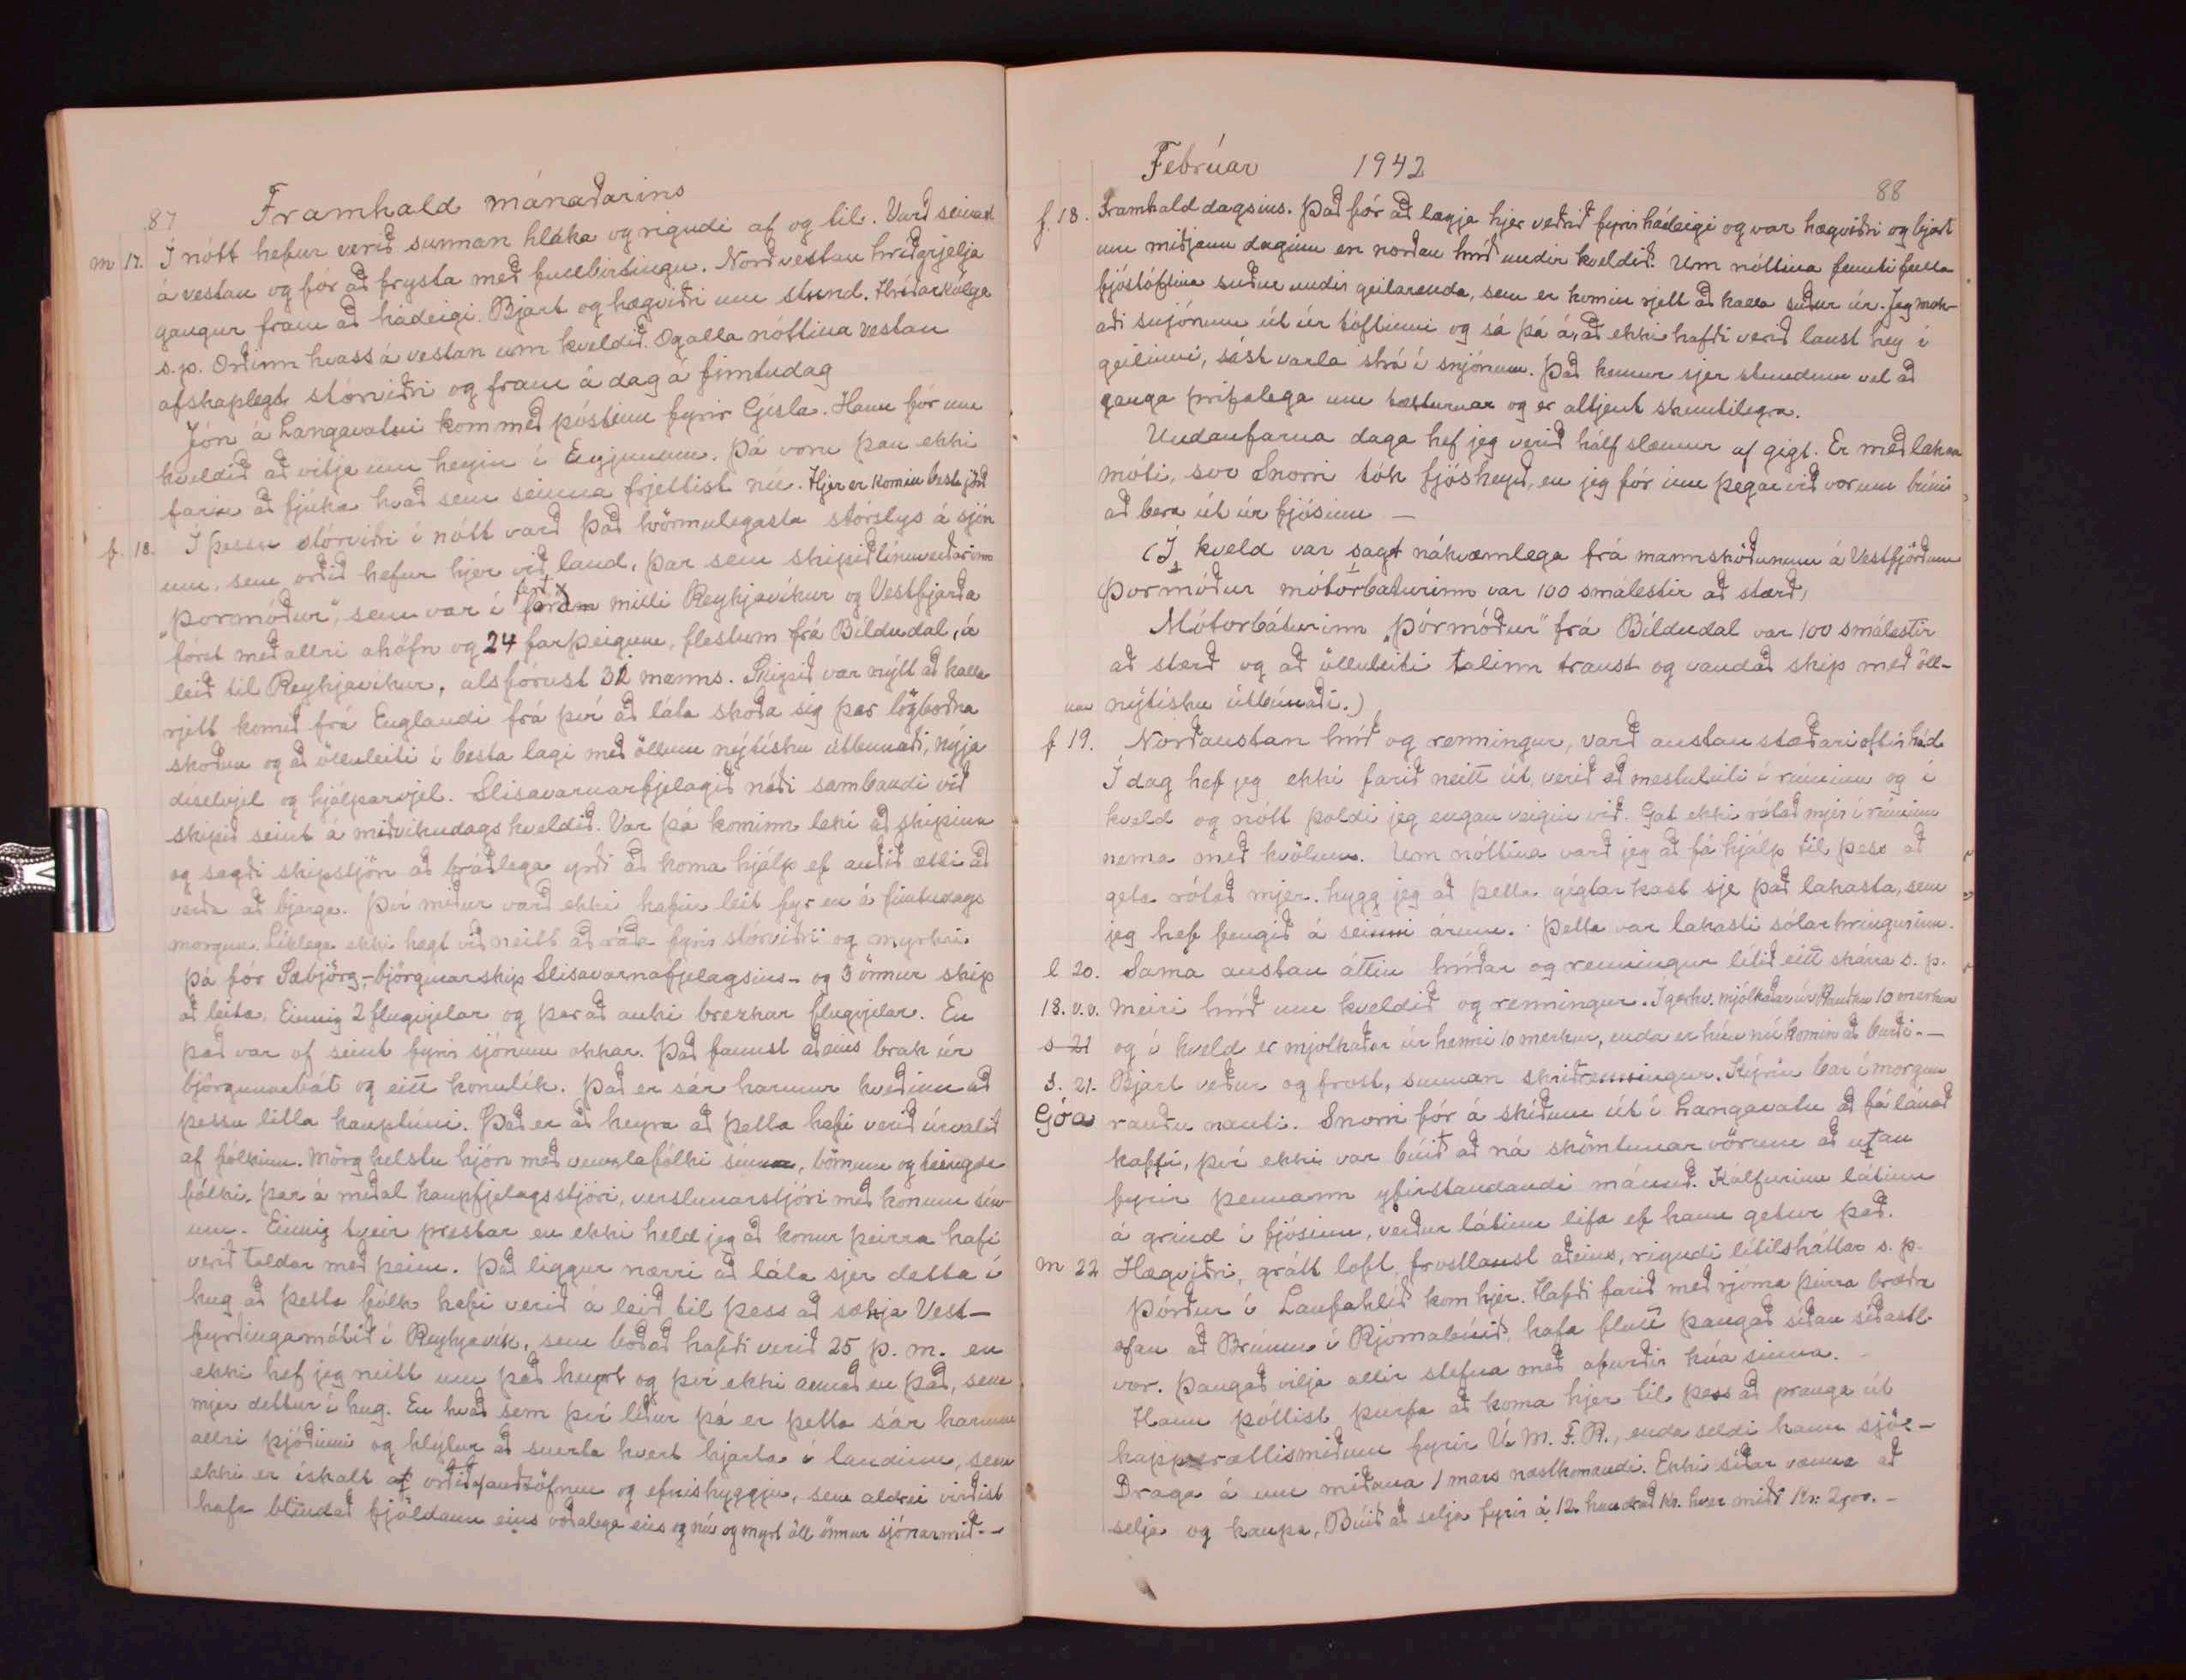 87 Framhald mánaðarins
m 17. Í nótt hefur verið sunnan hláka og rigndi af og til. Varð
á vestan og fór að frysta með fullbirtingu. Norðvestan hríðarjelja
gangur fram að hádeigi. Bjart og hægviðri um stund. Hríðarkólga
s.p. Orðinn hvass á vestan um kveldið. Og alla nóttina vestan
afskaplegt stórviðri og fram á dag á fimtudag
Jón á Langavatni kom með póstinn fyrir Gísla. Hann fór um
kveldið að vitja um heyin í Eyjunum. Þá voru þau ekki
farin að fjúka hvað sem seinna frjettist nú. Hjer er komin besta jörð
f. 18. Í þessu stórviðri í nótt varð það hörmulegasta stórslys á sjón
um, sem orðið hefur hjer við land, þar sem skipið línuveiðarinn
"Þormóður" sem var í ferð milli Reykjavíkur og Vestfjarða
fórst með allri áhöfn og 24 farþeigum, flestum frá Bíldudal, á
leið til Reykjavíkur, alsfórust 31 manns. Skipið var nýtt að kalla
rjett komið frá Englandi frá því að láta skoða sig þar lögboðna
skoðun og að ölluleiti í besta lagi með öllum nýtísku útbunaði, nýja
díselvjel og hjálparvjel. Slisavarnarfjelagið náði sambandi við
skipið seint á miðvikudagskveldið. Var þá kominn leki að skipinu
og sagði skipstjórn að bráðlega yrði að koma hjálp ef auðið ætti að
verða að bjarga. Því miður varð ekki hafin leit fyr en á fimtudags
morgun. Líklega ekki hægt við neitt að ráða fyrir stórviðri og myrkri.
Þá fór Sæbjörg,-björgunarskip Slisavarnafjelagsins- og 3 önnur skip
að leita. Einnig 2 flugvjelar og þar að auki brezkar flugvjelar. En
það var of seint fyrir sjónum okkar. Það fannst aðeins brak úr
björgunarbát og eitt konulík. Það er sár harmur kveðinn að
þessu litla kauptúni. Það er að heyra að þetta hafi verið úrvalið
af fólkinu. Mörg helstu hjón með venslafólki sínu, börnum og teingda
fólki, þar á meðal kaupfjelagsstjóri, verslunarstjóri með konum sín-
um. Einnig tveir prestar en ekki held jeg að konur þeirra hafi
verið taldar með þeim. Það liggur nærri að láta sjer detta í
hug að þetta fólk hafi verið á leið til þess að sækja Vest-
fyrðingamótið í Reykjavík, sem boðað hafði verið 25 þ.m. en
ekki hef jeg neitt um það heyrt og því ekki annað en það, sem
mjer dettur í hug. En hvað sem því líður þá er þetta sár harmur
allri þjóðinni og hlýtur að snerta hvert hjarta í landinu, sem
ekki er ískalt af orðið af auðsöfnun og efnishyggju, sem aldrei virðist
hafa blindað fjöldann eins voðalega eins og nú og myrt öll önnur sjónarmið.-
Febrúar 1942
88
f. 18. Framhald dagsins. Það fór að lægja hjer veðrið fyrir hádeigi og var hægviðri og bjart
um miðjann daginn en norðan hríð undir kveldið. Um nóttina fennti fulla
fjóstóftina suður undir geilarenda, sem er komin rjett að kalla suður úr. Jeg mok-
aði snjónum út úr tóftinni og sá þá á, að ekki hafði verið laust hey í
geilinni, sást varla strá í snjónum. Það kemur sjer stundum vel að
ganga þrifalega um tætturnar og er altjent skemtilegra.
Undanfarna daga hef jeg verið hálf slæmur af gigt. Er með lakara
móti, svo Snorri tók fjósheyið, en jeg fór inn þegar við vorum búnir
að bera út úr fjósinu -
(Í kveld var sagt nákvæmlega frá mannsköðunum á Vestfjörðum
Þormóður mótorbáturinn var 100 smálestir að stærð,
Mótorbáturinn "Þórmóður" frá Bíldudal var 100 smálestir
að stærð og að ölluleiti talinn traust og vandað skip með öll-
um nýtísku útbúnaði.)
f 19. Norðaustan hríð og renningur, varð austan stæðari eftir hád.
Í dag hef jeg ekki farið neitt út, verið að mestuleiti í rúminu og í
kveld og nótt þoldi jeg engan veiginn við. Gat ekki rótað mjer í rúminu
nema með kvölum. Um nóttina varð jeg að fá hjálp til þess að
geta rótað mjer. hygg jeg að þetta gigtarkast sje það lakasta, sem
jeg hef fengið á seinni árum. Þetta var lakasti sólarhringurinn.
l 20. Sama austan áttin hríðar og renningur lítið eitt skárra s. p.
18. v. v. Meiri hríð um kveldið og renningur. Í gærkv. mjólkaðar úr Rauðku 10 merkur
s 21 og í kveld er mjólkaðar úr henni 10 merkur, enda er hún nú komin að burði.-
S. 21. Bjart veður og frost, sunnan skriðrenningur. Kýrin bar í morgun
Góa rauðu nauti. Snorri fór á skíðum út í Langavatn að fá lánað
kaffi, því ekki var búið að ná skömtunar vörum að utan
fyrir þennann yfirstandandi mánuð. Kálfurinn látinn
á grind í fjósinu, verður látinn lifa ef hann getur það.
m 22 Hægviðri, grátt loft frostlaust aðeins, rigndi lítilsháttar s. p.
Þórður í Laufahlíð kom hjer. Hafði farið með rjóma þeirra bræðra
ofan að Brúum í Rjómabúið, hafa flutt þangað síðan síðastl.
vor. Þangað vilja allir stefna með afurðir kúa sinna. -
Hann þóttist þurfa að koma hjer til þess að pranga út
happdrættismiðum fyrir U. M. F. R., enda seldi hann sjö -
Draga á um miðana 1 mars næstkomandi. Ekki síðar vænna að
selja og kaupa, Búið að selja fyrir á 12 hundrað Kr. hver miði Kr: 2,00. -